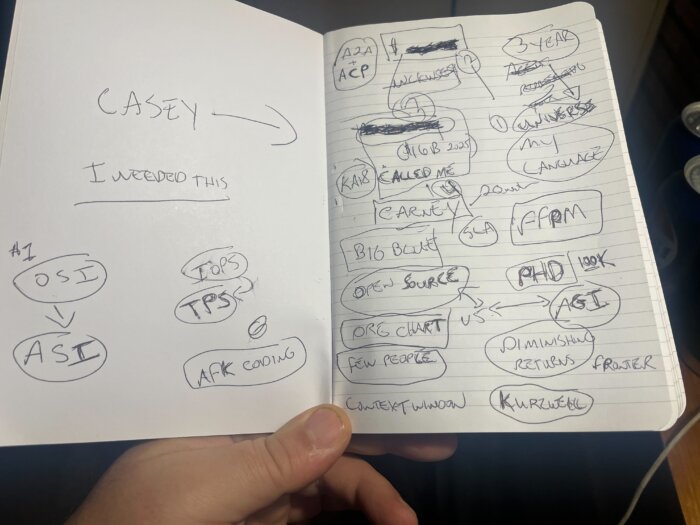 CASEY
I NEEDED THIS
#1
OSI
ASI
IOPS
TPS
6
AFK CODING
A2A
+
ACP
$
2
3
$16B 2025
CALLED ME
4
KEARNEY
SLA
BIG BLUE
OPEN SOURCE
ORG CHART
FEW PEOPLE
CONTEXT WINDOW
3 YEAR
1
UNIVERSE
MY
LANGUAGE
FFPM
PHD 100K
VS
AGI
DIMINISHING
RETURNS
FRONTIER
KURZWEIL